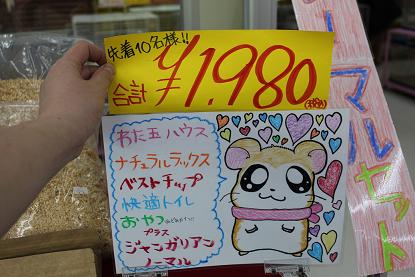 先着10名様!!
合計 ¥1,980(税込)
わた玉ハウス
ナチュラルラックス
ベストチップ
快適トイレ
おやつ
プラス
ジャンガリアン
ノーマル
ーマルセット